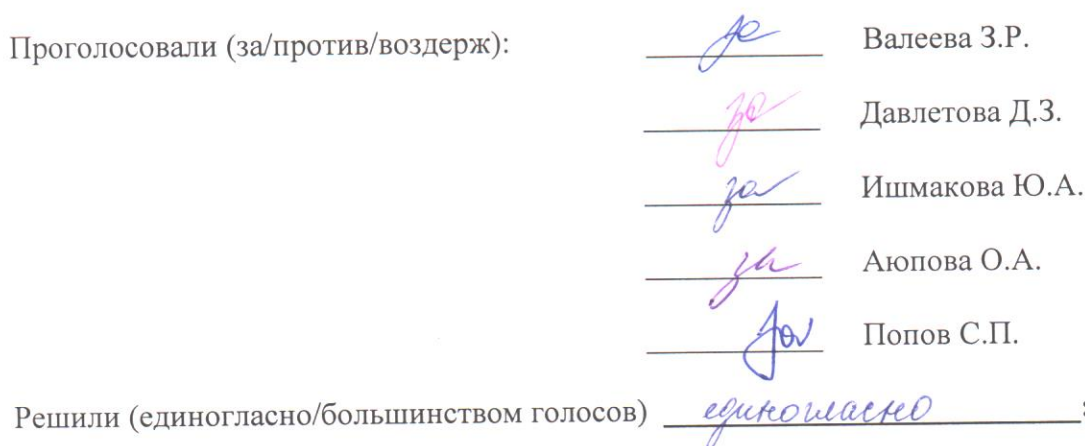 Проголосовали (за/против/воздерж): за Валеева З.Р.
за Давлетова Д.З.
за Ишмакова Ю.А.
за Аюпова О.А.
за Попов С.П.
Решили (единогласно/большинством голосов) единогласно